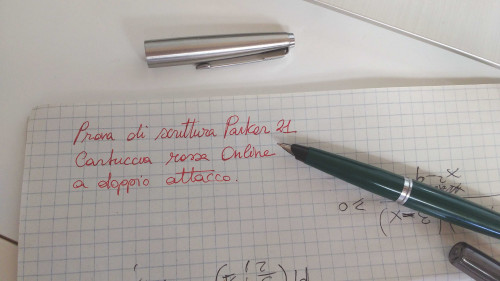 Prova di scrittura Parker 21
Cartuccia rossa Online
a doppio attacco.